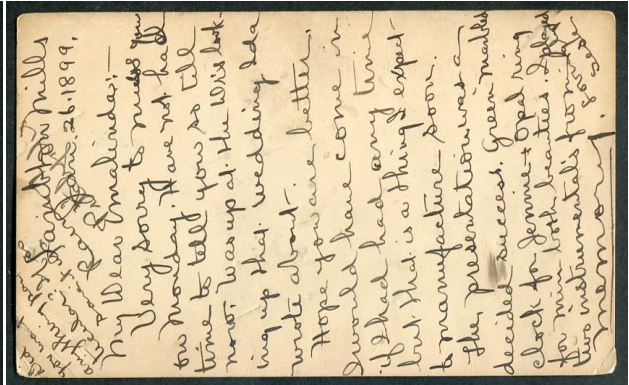 Hamilton Mills
Jan 26. 1899.
My Dear Malinda;—
Very sorry to miss you
on Monday. Have not had
time to tell you so till
now. Was up at the Wis look
ing up that wedding Ida
wrote about.
Hope you are better.
Would have come in
if I had had any time
but that is a thing I expect
to manufacture soon.
The presentation was a
decided success. Green marble
clock for Jennie & Opal ring
for min both beauties I played
two instrumentals from
memory!
Did
you want
anything par
ticular,
said